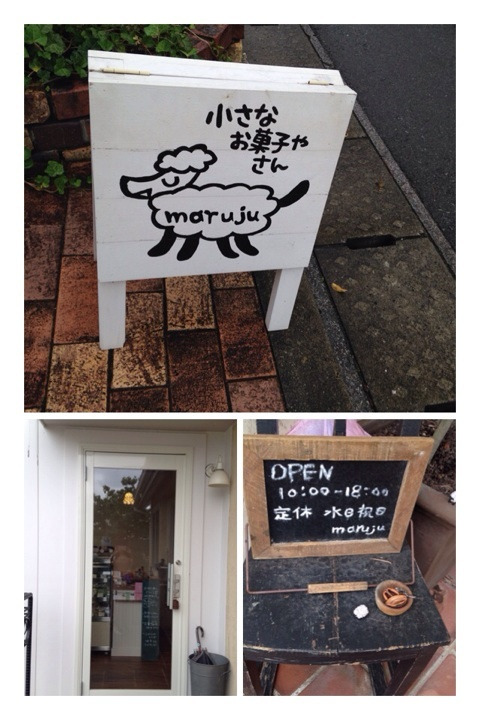 小さな
お菓子や
さん
maruju
OPEN
10:00-18:00
定休 水日祝日
maruju